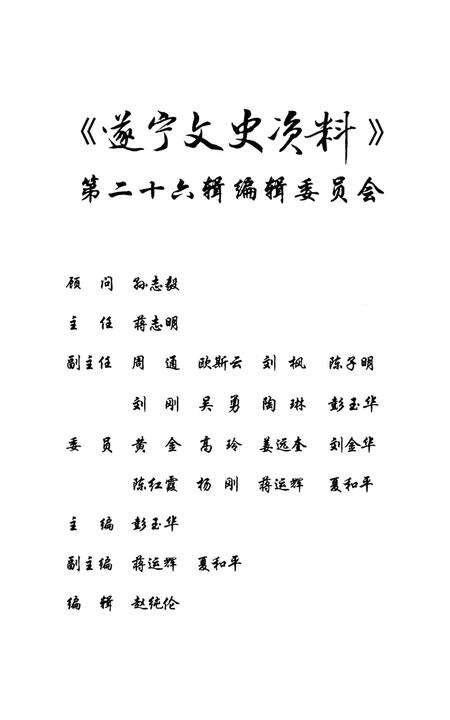 《遂宁文史资料》
第二十六辑编辑委员会
顾 问 孙志毅
主 任 蒋志明
副主任 周 通 欧斯云 刘 枫 陈子明
刘 刚 吴 勇 陶 琳 彭玉华
委 员 黄 金 高 玲 姜远奎 刘金华
陈红霞 杨 刚 蒋运辉 夏和平
主 编 彭玉华
副主编 蒋运辉 夏和平
编 辑 赵纯伦